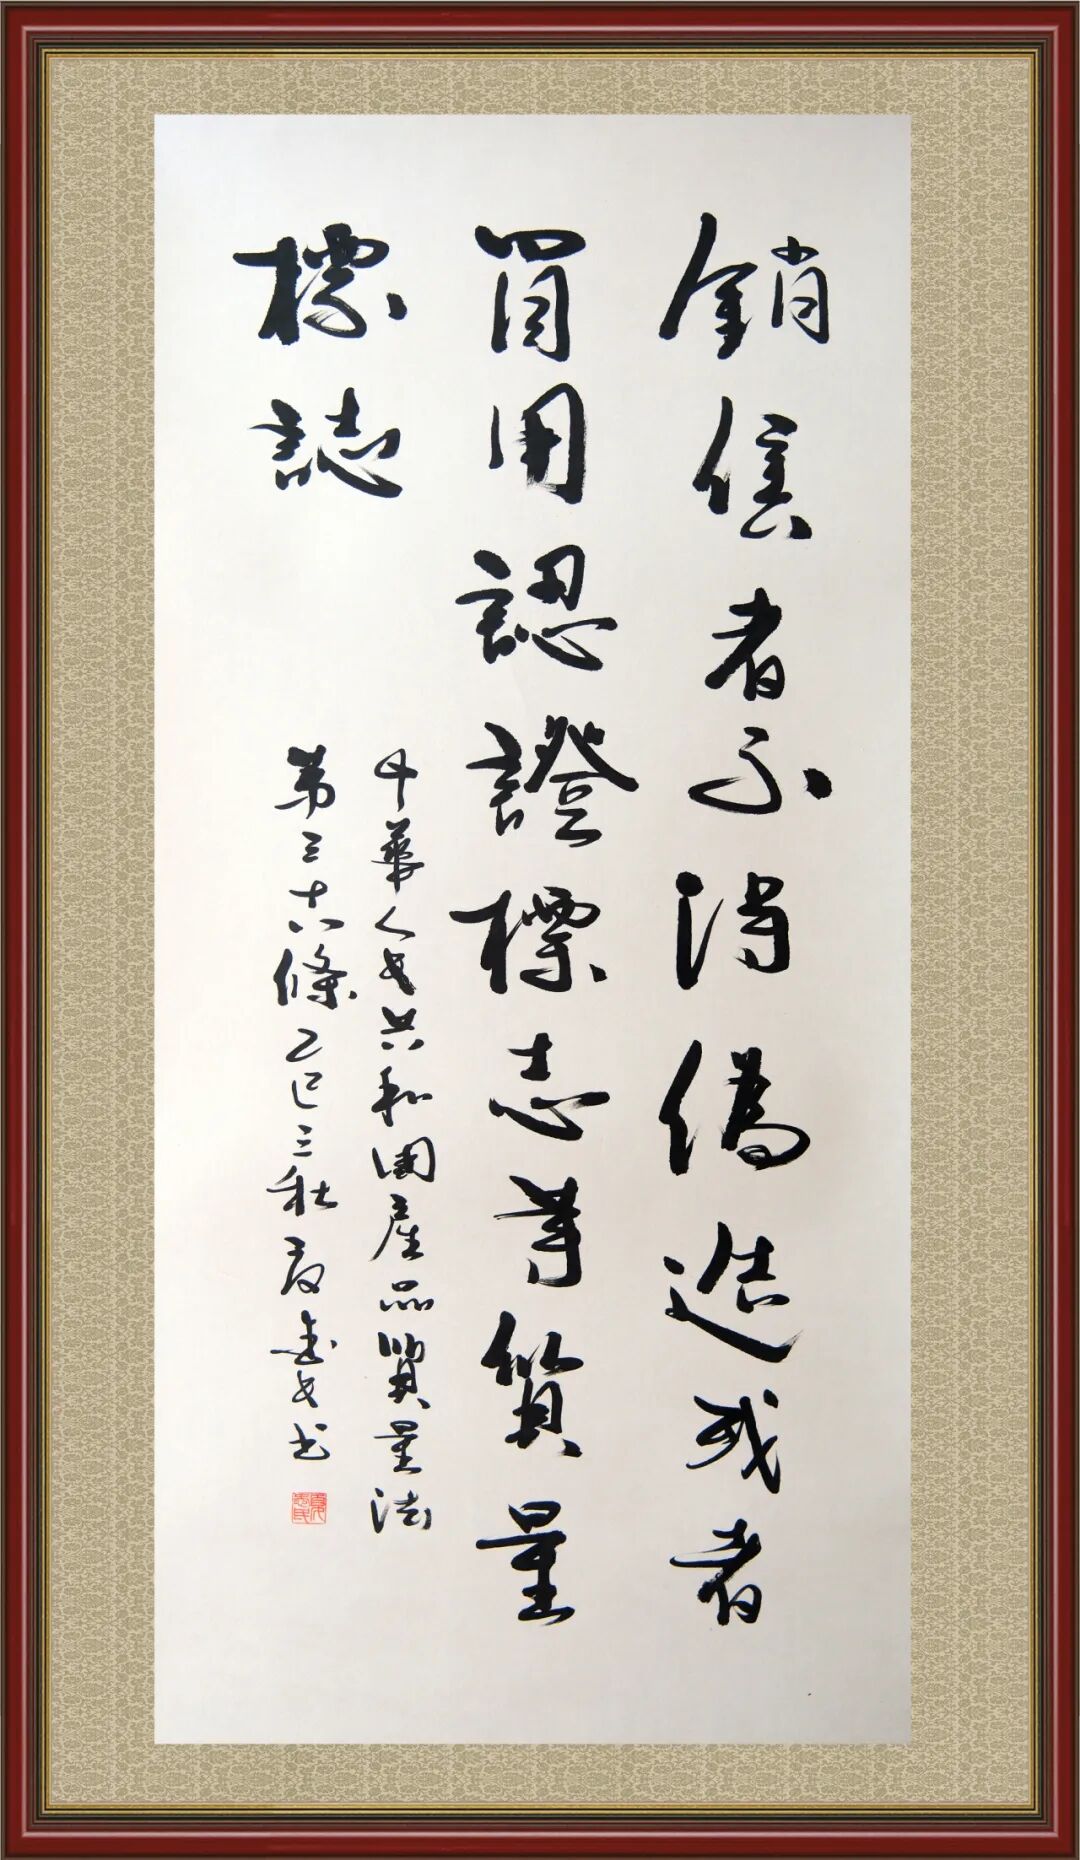 銷售者不得偽造或者
冒用認證標志等質量
標誌
中華人民共和國產品質量法
第三十八條乙巳三秋夏民书